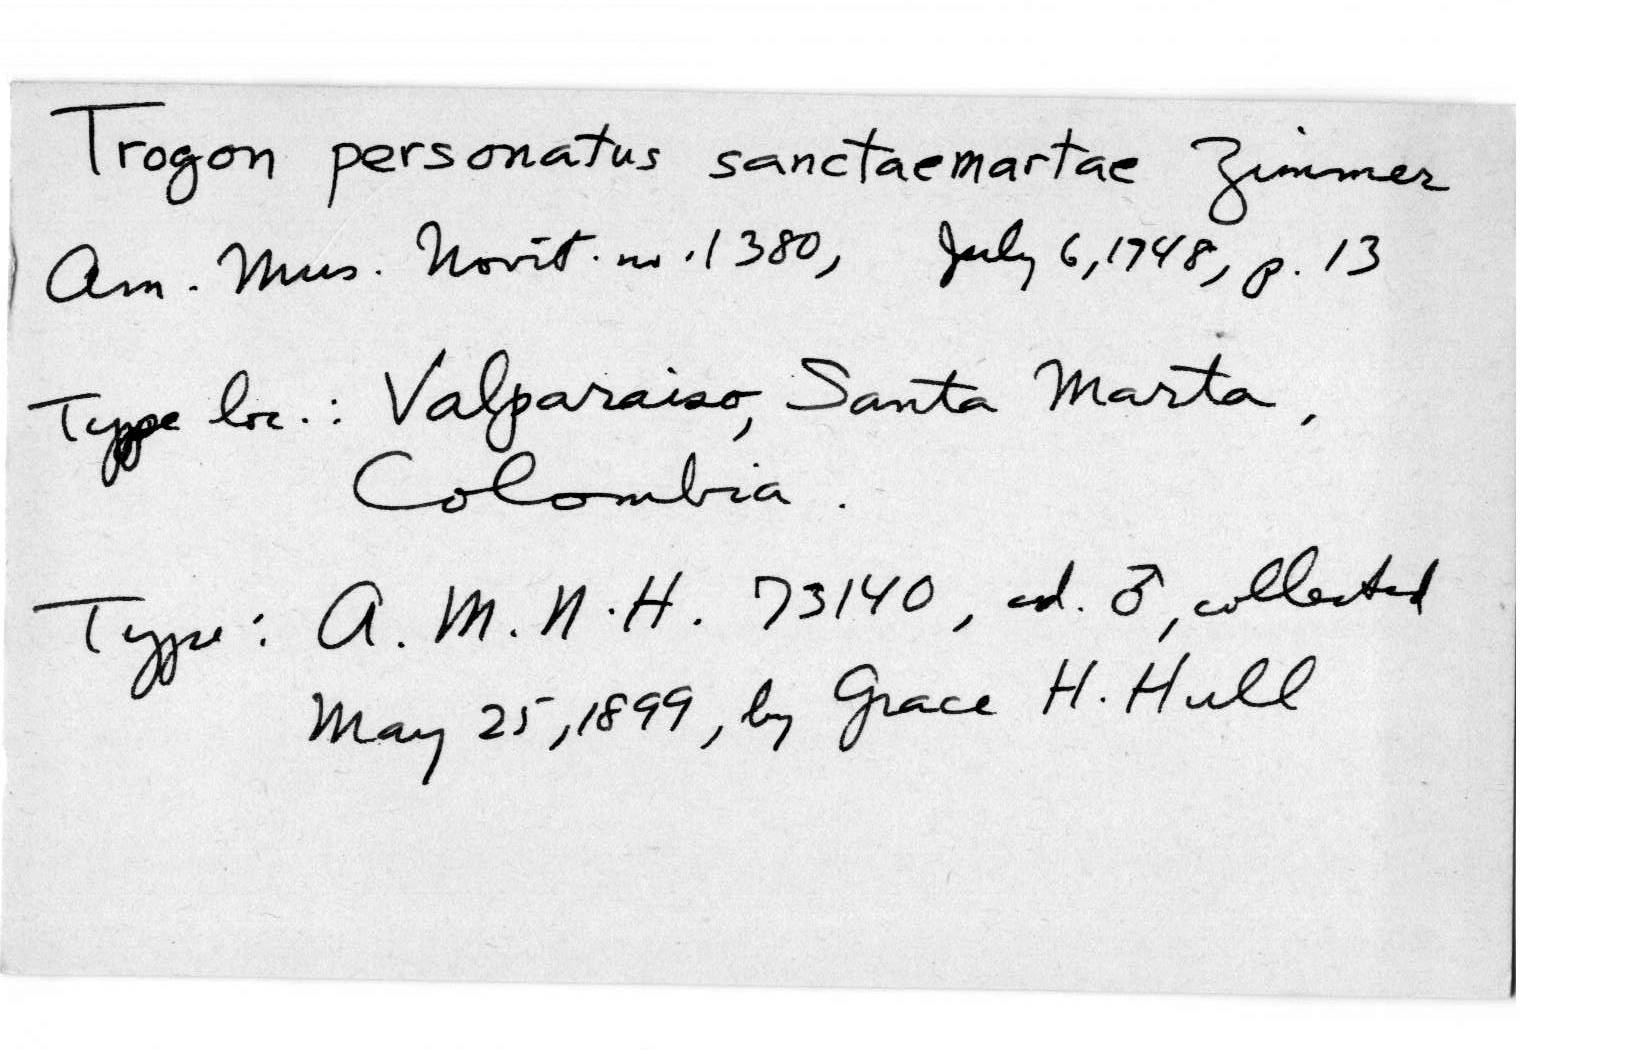 Trogon personatus sanctaemartae Zimmer
Am. Mus. Novit. no. 1380, July 6, 1948, p. 13
Type loc.: Valparaiso, Santa Marta,
Colombia.
Type: A.M.N.H. 73140, ad. ♂, collected
May 25, 1899, by Grace H. Hull